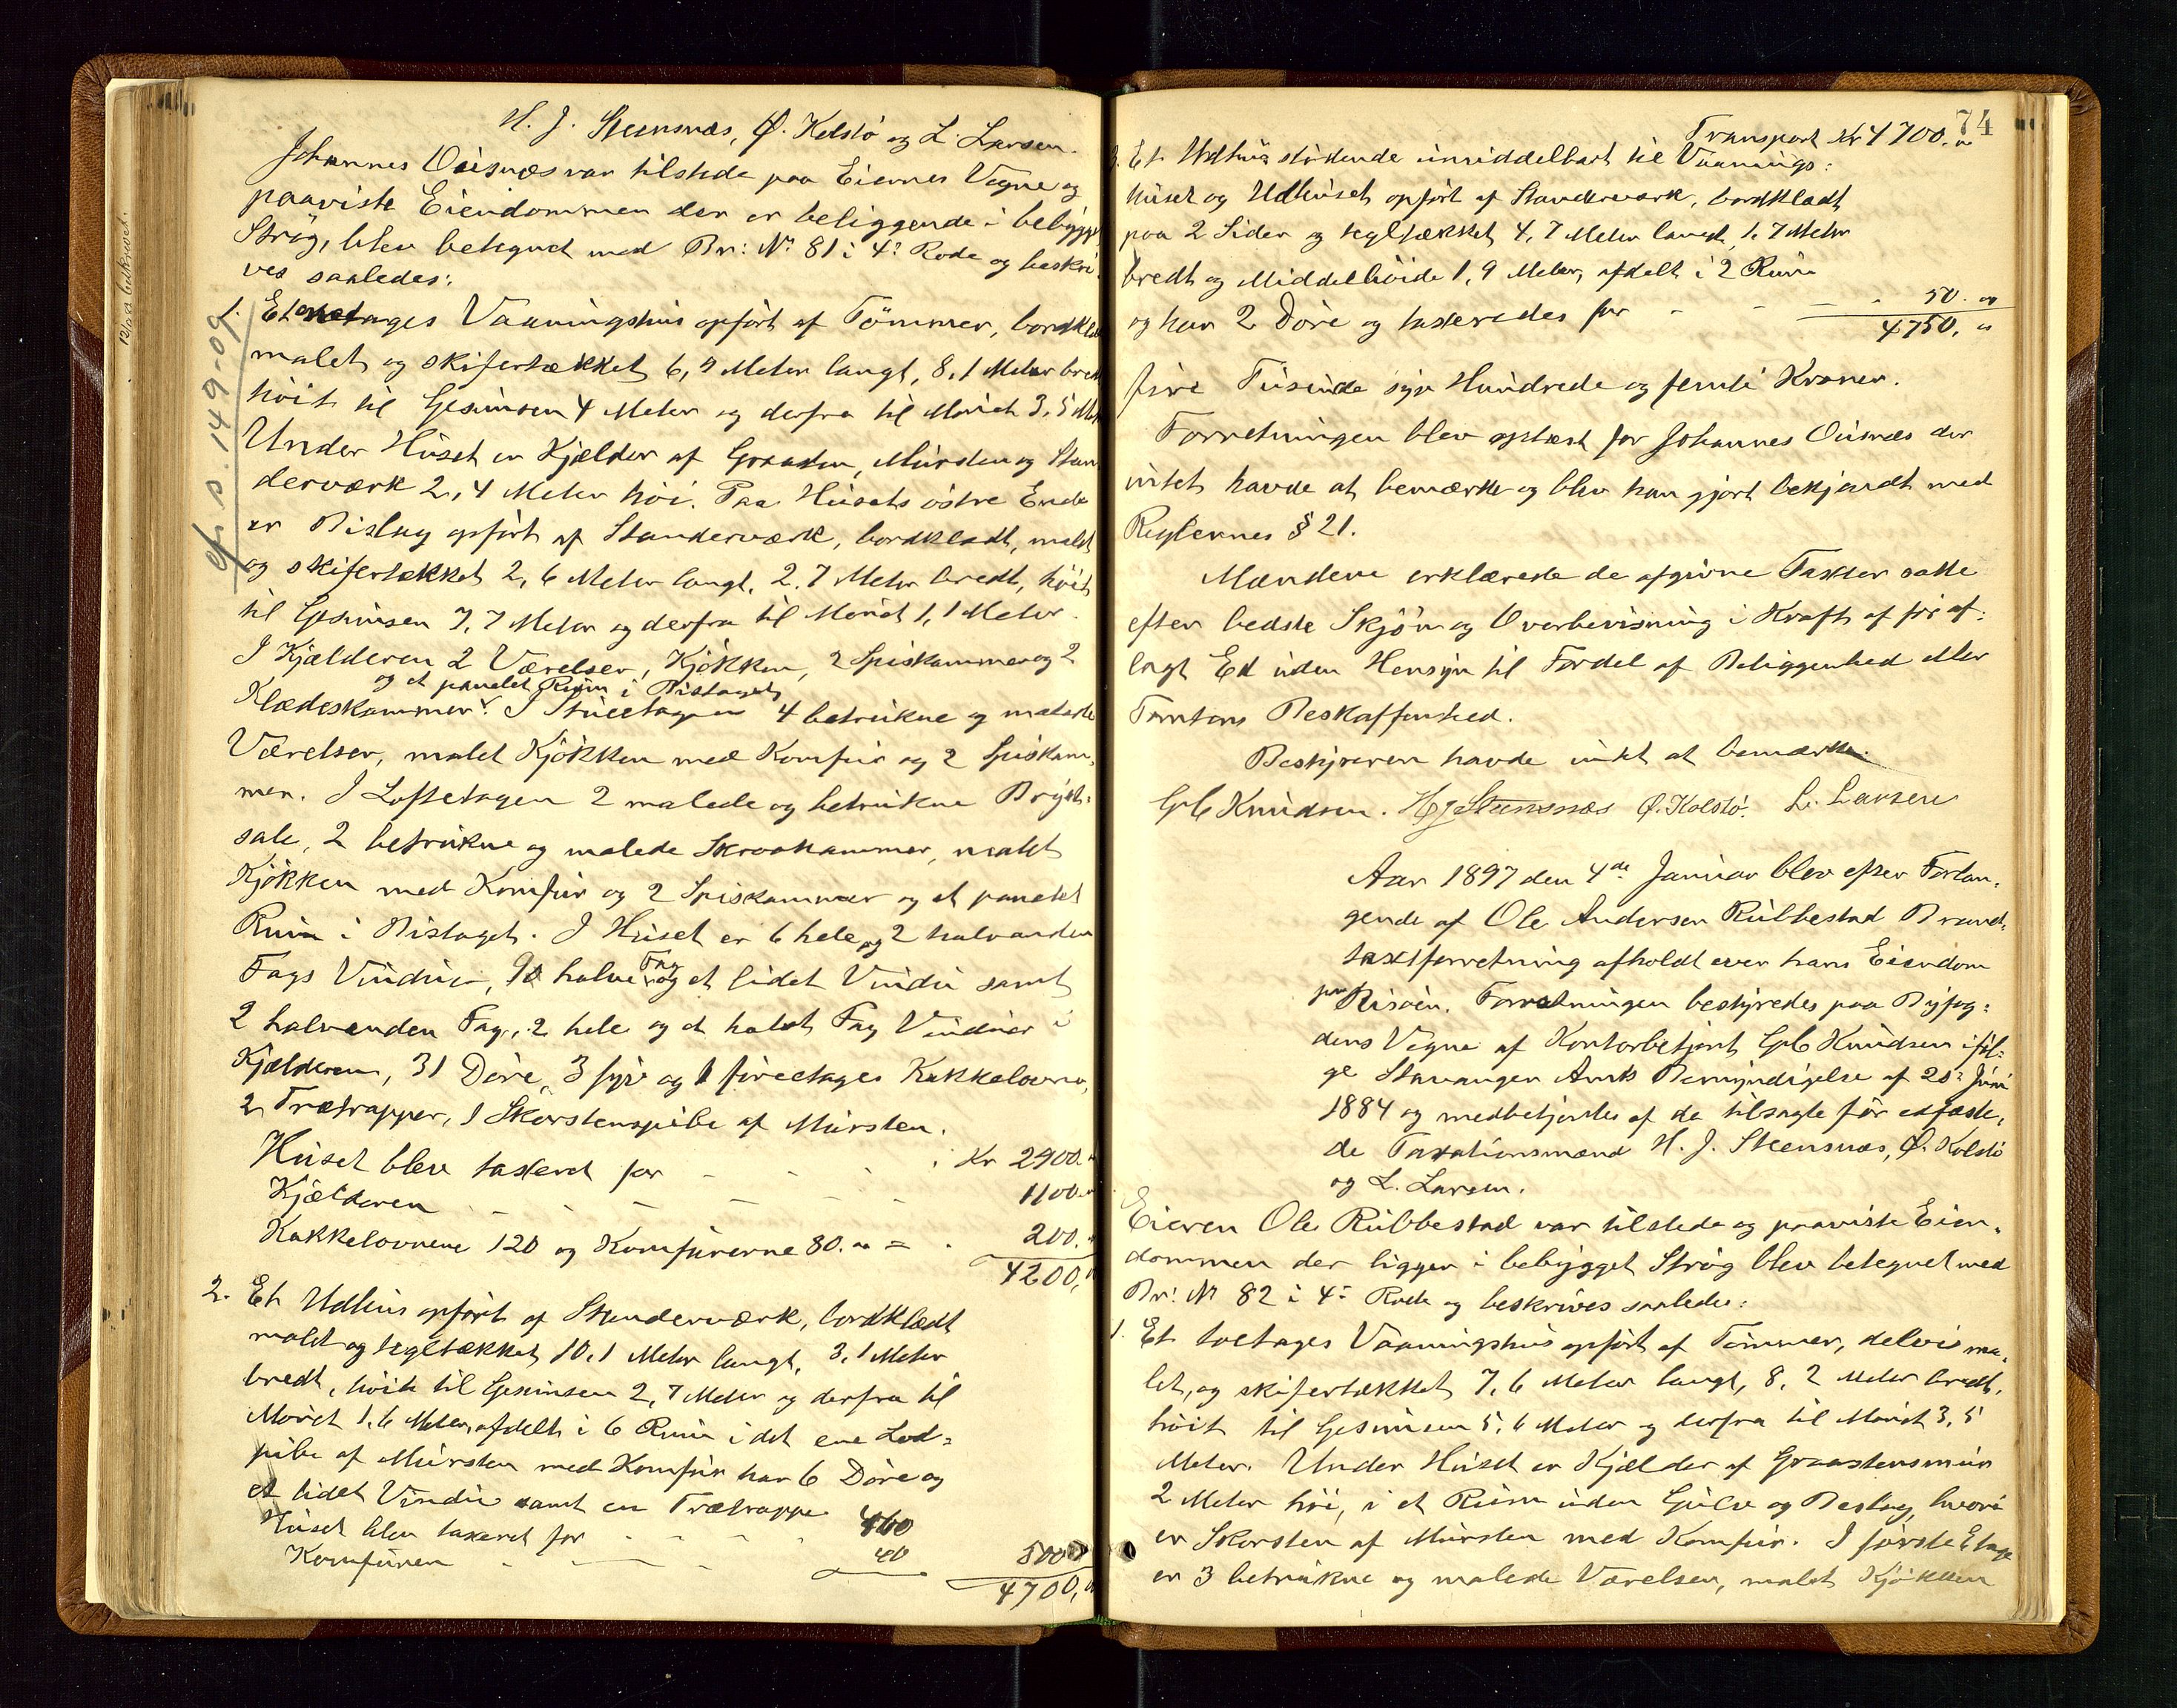 H. J. Steensnæs, Ø. Kolstö og L. Larsen.
Johannes Oisnæs var tilstede paa Eiernes Vegne og
paaviste Eiendommen der er beliggende i bebygget
Strög, blev betegnet med Br: Nº 81 i 4º Rode og beskri-
ves saaledes:
cfr. s. 149-09
1. Et enetages Vaaningshus opfört af Tömmer, bordklædt
malet og skifertækket 6,9 Meter langt, 8,1 Meter bredt
höit til Gesimsen 4 Meter og derfra til Mönet 3,5 Met
Under Huset er Kjælder af Graasten, Mursten og Stan
derværk 2,4 Meter höi. Paa Husets östre Ende
er Bislag opfört af Standerværk, bordklædt, malet
og skifertækket 2,6 Meter langt, 2,7 Meter bredt, höit
til Gesimsen 7,7 Meter og derfra til Mönet 1,1 Meter.
I Kjælderen 2 Værelser, Kjökken, 2 Spiskammer og 2
og et panelet Rum i Bislaget
Klædeskammer. I Stueetagen 4 betrukne og malede
Værelser, malet Kjökken med Komfur og 2 Spiskam-
mer. I Loftetagen 2 malede og betrukne Bryst=
sale, 2 betrukne og malede Skraakammer, malet
Kjökken med Komfur og 2 Spiskammer og et panelet
Rum i Bislaget. I Huset er 6 hele og 2 halvanden
Fags Vinduer, 10 halve Fag og et lidet Vindu samt
2 halvanden Fag, 2 hele og et halvt Fag Vinduer i
Kjælderen, 31 Döre, 3 fyr og 1 fireetages Kakkelovne,
2 Trætrapper, 1 Skorstenspibe af Mursten.
Huset blev taxeret for - - - Kr 2900.
Kjælderen - - - - 1100.
Kakkelovnene 120 og Komfurerne 80. = 200.
4200,
2. Et Udhus opfört af Standerværk, bordklædt
malet og tegltækket 10,1 Meter langt, 3,1 Meter
bredt, höit til Gesimsen 2,7 Meter og derfra til
Mönet 1,6 Meter, afdelt i 6 Rum i det ene Lod=
pibe af Mursten med Komfur har 6 Döre og
et lidet Vindu samt en Trætrappe
Huset blev taxeret for - - - 460
Komfuren - - - 40 500
4700,
74
Transport Kr 4700.
3. Et Udhus stödende umiddelbart til Vaanings=
huset og Udhuset opfört af Standerværk, bordklædt
paa 2 Sider og tegltækket 4,7 Meter langt, 1,7 Meter
bredt og Middelhöide 1,9 Meter, afdelt i 2 Rum
og har 2 Döre og taxeredes for - - - 50.
4750.
fire Tusinde syv Hundrede og femti Kroner.
Forretningen blev oplæst for Johannes Oisnæs der
intet havde at bemærke og blev han gjort bekjendt med
Reglernes § 21.
Mændene erklærede de afgivne Taxter satte
efter bedste Skjön og Overbevisning i Kraft af för af=
lagt Ed uden Hensyn til Fordel af Beliggenhed eller
Tomtens Beskaffenhed.
Bestyreren havde intet at bemærke.
Knudsen. H J Steensnæs Ø. Kolstö. L. Larsen
Aar 1897 den 4de Januar blev efter Forlan-
gende af Ole Andersen Rubbestad Brand-
taxtforretning afholdt over hans Eiendom
paa Risöen. Forretningen bestyredes paa Byfog=
dens Vegne af Kontorbetjent Knudsen iföl=
ge Stavanger Amts Bemyndigelse af 20º Juni
1884 og medbetjentes af de tilsagte för edfæste-
de Taxationsmænd H. J. Steensnæs, Ø. Kolstö
og L. Larsen.
Eieren Ole Rubbestad var tilstede og paaviste Eien-
dommen der ligger i bebygget Strög blev betegnet med
Br: Nº 82 i 4º Rode og beskrives saaledes:
1. Et toetages Vaaningshus opfört af Tömmer, delvis ma-
let, og skifertækket 7,6 Meter langt, 8,2 Meter bredt,
höit til Gesimsen 5,6 Meter og derfra til Mönet 3,5
Meter. Under Huset er Kjælder af Graastensmur
2 Meter höi, i et Rum uden Gulv og Beslag, hvori
er Skorsten af Mursten med Komfur. I förste Etage
er 3 betrukne og malede Værelser, malet Kjökken